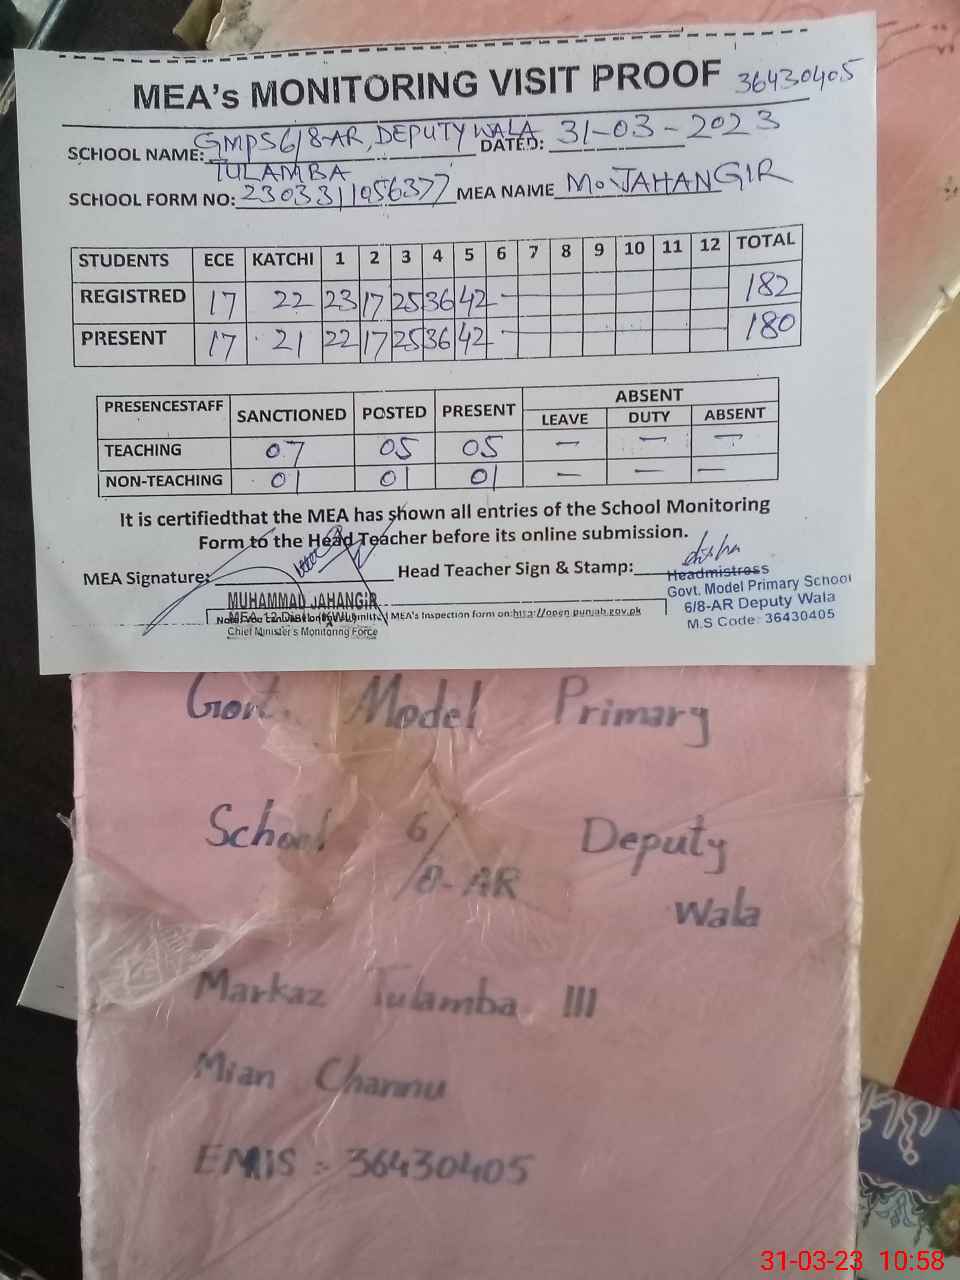 MEA's MONITORING VISIT PROOF 36430405
SCHOOL NAME: GMPS 6/8-AR, DEPUTY WALA DATED: 31-03-2023
TULAMBA
SCHOOL FORM NO: 2303311056377 MEA NAME Mo. JAHANGIR
STUDENTS ECE KATCHI 1 2 3 4 5 6 7 8 9 10 11 12 TOTAL
REGISTRED 17 22 23 17 25 36 42 - 182
PRESENT 17 21 22 17 25 36 42 - 180
PRESENCESTAFF SANCTIONED POSTED PRESENT ABSENT
LEAVE DUTY ABSENT
TEACHING 07 05 05 - - -
NON-TEACHING 01 01 01 - - -
It is certifiedthat the MEA has shown all entries of the School Monitoring
Form to the Head Teacher before its online submission.
MEA Signature: Head Teacher Sign & Stamp:
Headmistress
Govt. Model Primary School
6/8-AR Deputy Wala
M.S Code: 36430405
MUHAMMAD JAHANGIR
MEA's Inspection form on:http://open.punjab.gov.pk
Chief Minister's Monitoring Force
Govt. Model Primary
School 6/8-AR Deputy
Wala
Markaz Tulamba III
Mian Channu
EMIS : 36430405
31-03-23 10:58